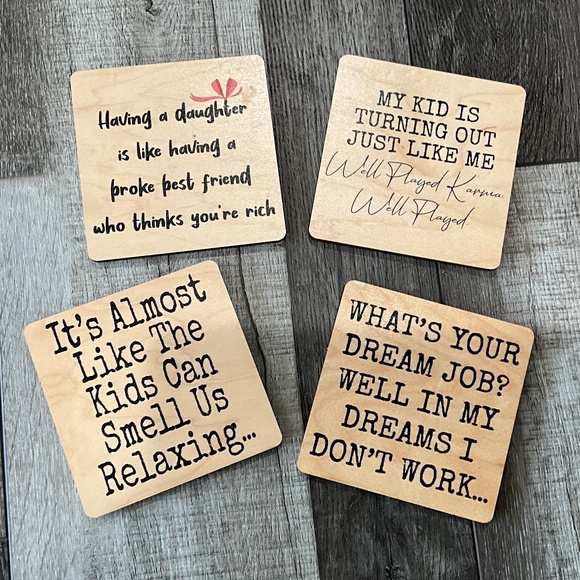 Having a daughter
is like having a
broke best friend
who thinks you're rich
MY KID IS
TURNING OUT
JUST LIKE ME
Well Played Karma.
Well Played
It's Almost
Like The
Kids Can
Smell Us
Relaxing...
WHAT'S YOUR
DREAM JOB?
WELL IN MY
DREAMS I
DON'T WORK...